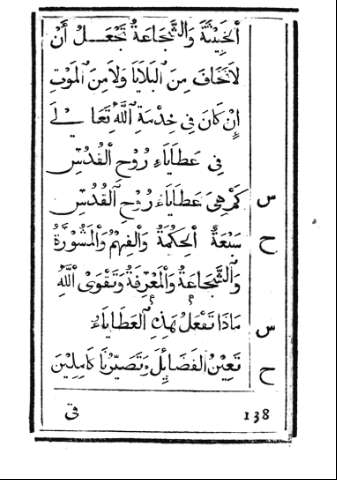 الخبيثة والشجاعة تجعل أن
لانخاف من البلايا ولا من الموت
إن كان في خدمة الله تعالى
في عطاياء روح القدس
س كم هي عطاياء روح القدس
ح سبعة الحكمة والفهم والمشورة
والشجاعة والمعرفة وتقوى الله
س ماذا تفعل هذه العطاياء
ح تعين الفضائل وتصيرنا كاملين
138 في